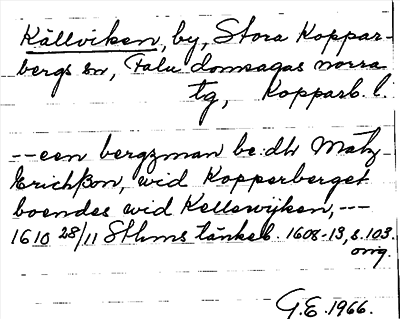 Källviken, by, Stora Koppar-
bergs sn, Falu domsagas norra
tg, Kopparb. l.
--een bergzman be:dh Matz
Erichßon, wid Kopperberget
boendes wid Kellewijken, --
1610 28/11 Sthms tänkeb. 1608-13, s. 103.
orig.
G.E. 1966.